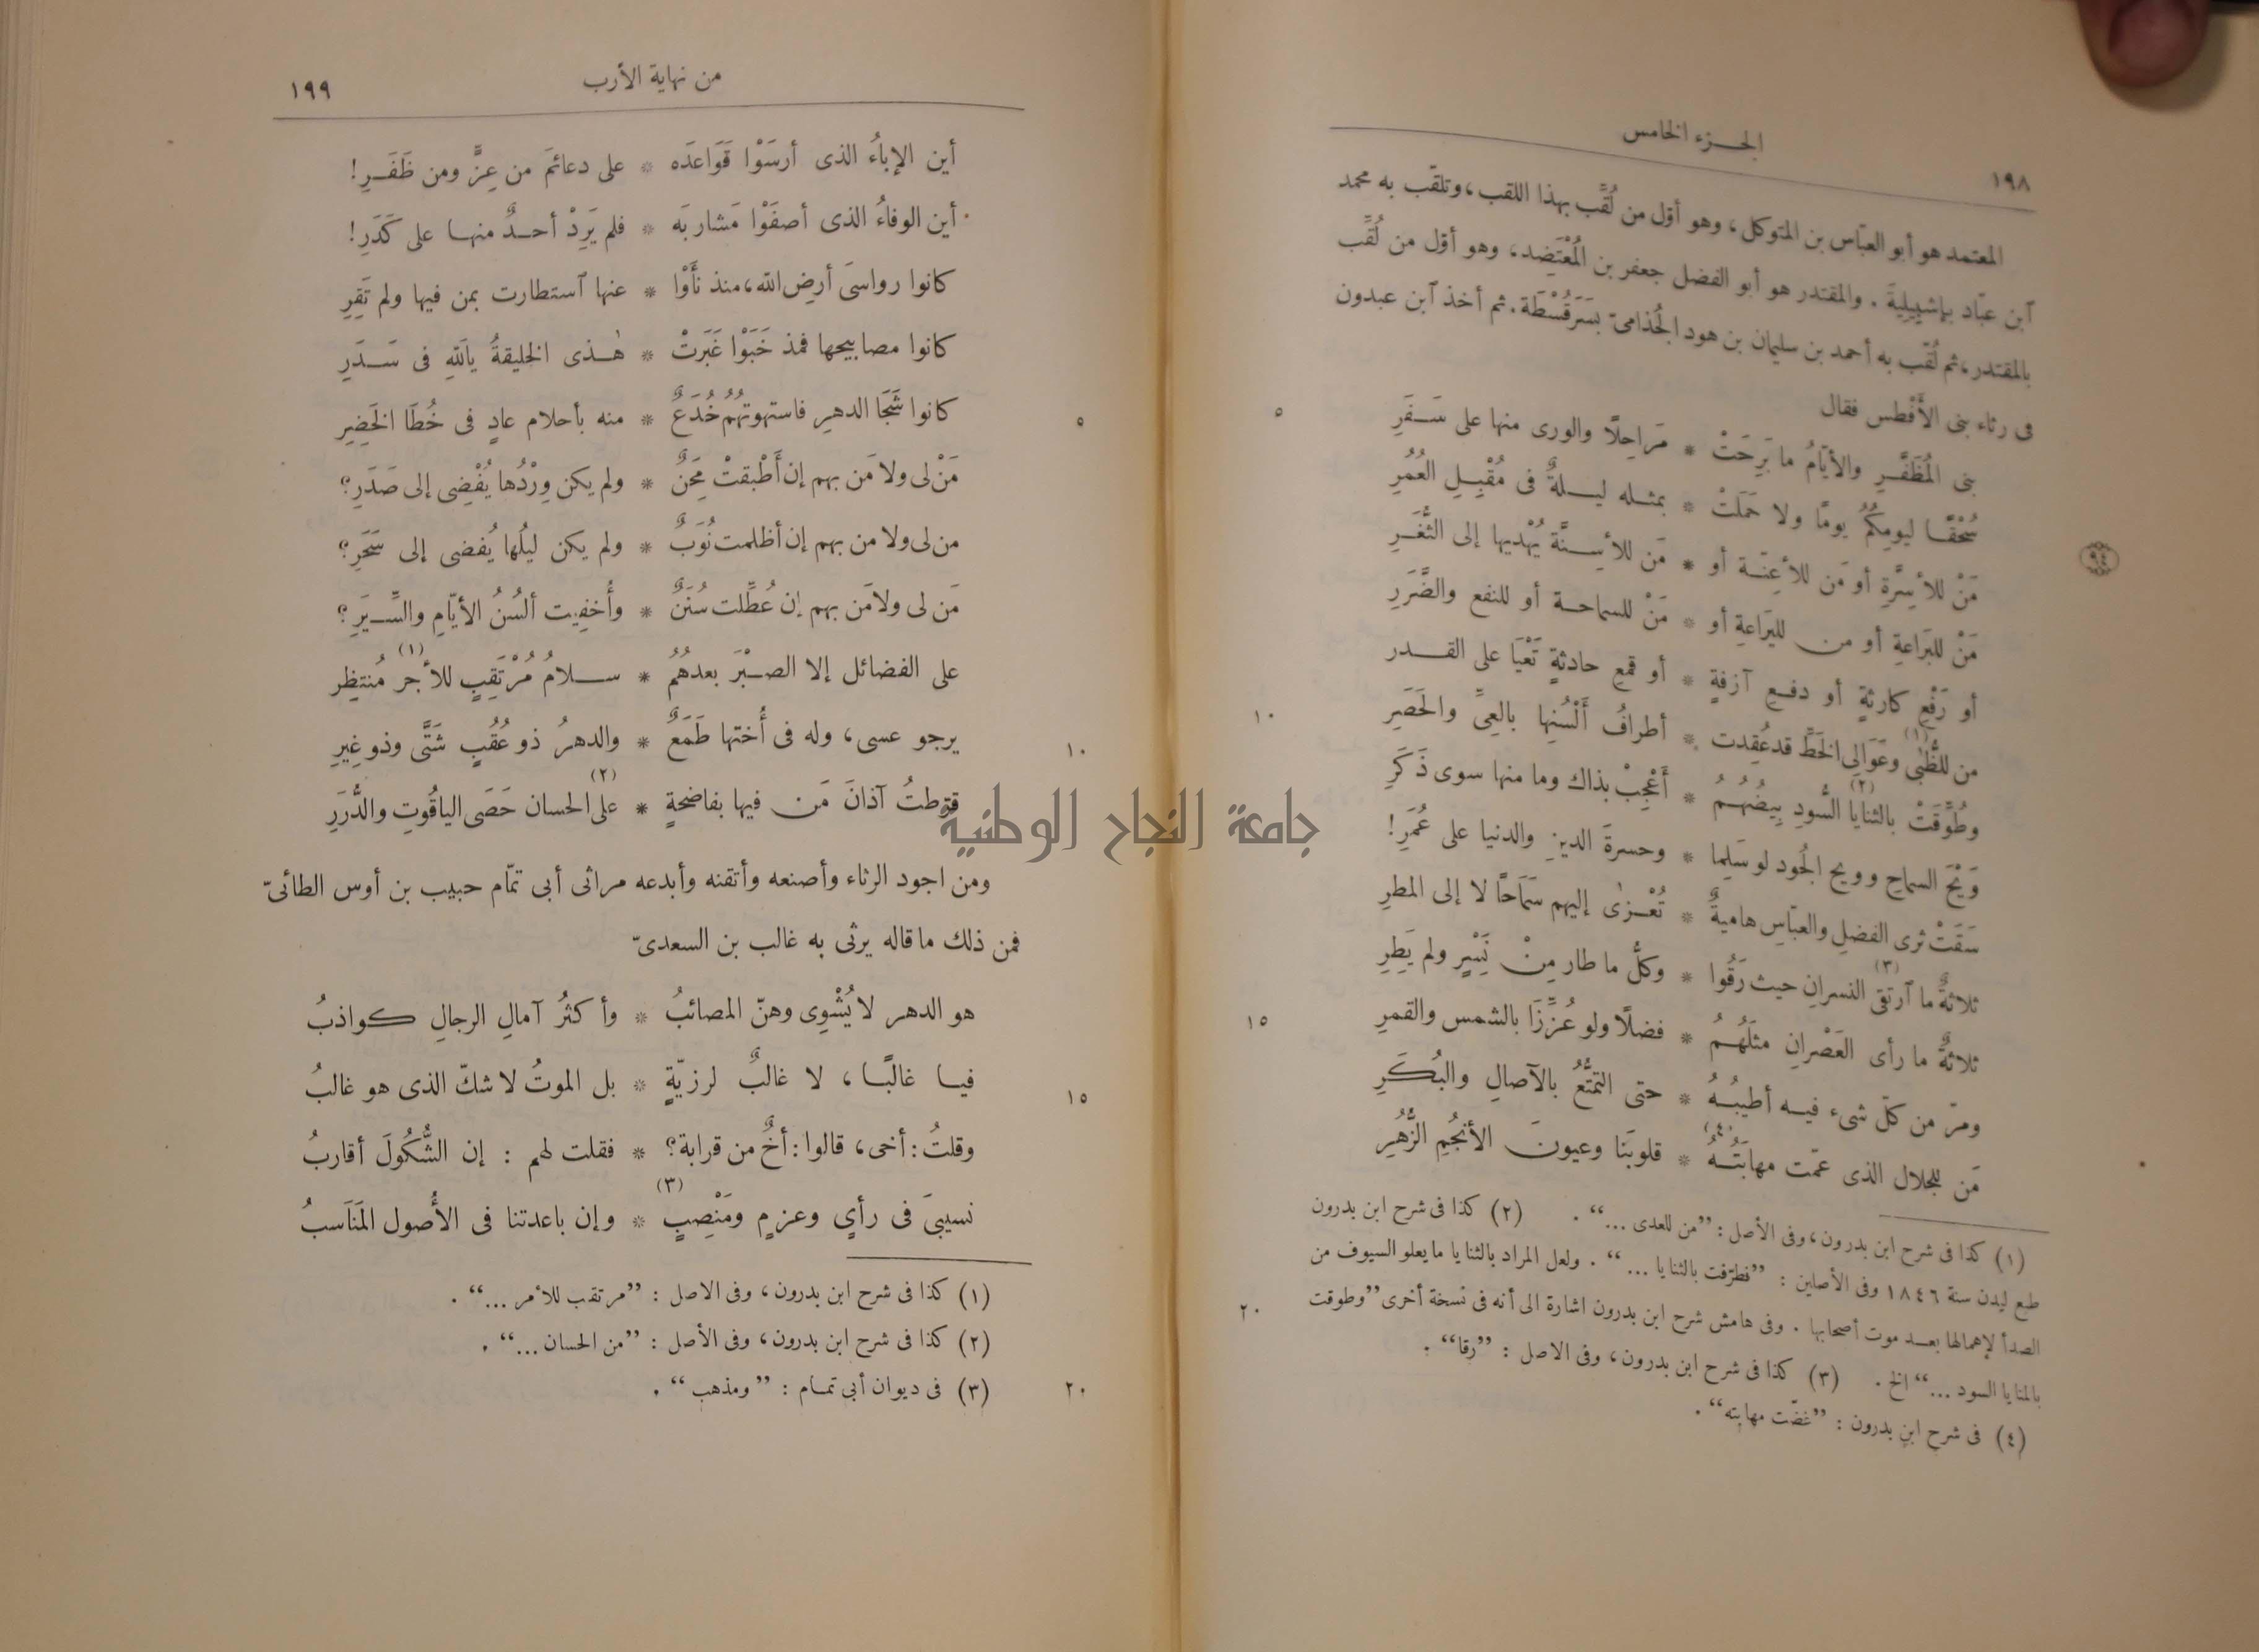 ١٩٨
الجـزء الخامس
المعتمد هو أبو العبّاس بن المتوكل، وهو أوّل من لُقِّب بهذا اللقب، وتلقّب به محمد
آبن عبّاد بإشبِيلِيةَ . والمقتدر هو أبو الفضل جعفر بن المُعْتَضِد، وهو أوّل من لُقِّب
بالمقتدر، ثم لُقّب به أحمد بن سليمان بن هود الجُذامىّ بسَرَقُسْطَة. ثم أخذ آبن عبدون
فى رثاء بنى الأَفْطس فقال
٥
بنى المُظَفَّـرِ والأيّامُ ما بَرِحَتْ * مَراحِلًا والورى منها على سَـفَرِ
سُحْقًـا ليومِكُمُ يومًا ولا حَمَلَتْ * بمثـله ليـلةٌ فى مُقْبِـلِ العُمُرِ
مَنْ للأَسِرَّةِ أو مَن للأعِنّـة أو * مَن للأسِـنَّة يُهْديها إلى الثُّغَـرِ
٩٤
مَنْ للبَراعةِ أو مـن لليَراعةِ أو * مَنْ للسماحـة أو للنفع والضَّرَرِ
أو رَفْعِ كارثةٍ أو دفـعِ آزفةٍ * أو قمعِ حادثةٍ تَعْيَا على القـدر
١٠
من للظُّبَى(١) وعَوَالِى الخَطِّ قد عُقِدت * أطرافُ أَلْسُنِها بالعِىِّ والحَصَرِ
وطُوِّقَتْ بالثنايا(٢) السُّودِ بِيضُهُـمُ * أَعْجِبْ بذاك وما منها سوى ذَكَرِ
وَيْحَ السماحِ وويح الجُود لو سَلِما * وحسرةَ الدينِ والدنيا على عُمَرِ!
سَقَتْ ثرى الفضلِ والعبّاسِ هاميةٌ * تُعْـزىٰ إليهم سَمَاحًا لا إلى المطرِ
ثلاثةٌ ما آرتقى النسرانِ(٣) حيث رَقُوا * وكلُّ ما طار مِنْ نَسْرٍ ولم يَطِرِ
١٥
ثلاثةٌ ما رأى العَصْرانِ مثلَهُـمُ * فضلًا ولو عُزِّزَا بالشمس والقمرِ
ومرّ من كلّ شىء فيـه أطيبُـهُ * حتى التمتُّعُ بالآصالِ والبُكَـرِ
مَن للجلال الذى عمّت مهابَتُـهُ(٤) * قلوبَنا وعيونَ الأنجُمِ الزُّهُرِ
(١) كذا فى شرح ابن بدرون، وفى الأصل : ”من للعدى ...“ . (٢) كذا فى شرح ابن بدرون
طبع ليدن سنة ١٨٤٦ وفى الأصلين : ”فطرّفت بالثنايا ...“ . ولعل المراد بالثنايا ما يعلو السيوف من
الصدأ لإهمالها بعـد موت أصحابها . وفى هامش شرح ابن بدرون اشارة الى أنه فى نسخة أخرى ”وطوقت
٢٠
بالمنايا السود ...“ الخ . (٣) كذا فى شرح ابن بدرون، وفى الاصل : ”رقا“ .
(٤) فى شرح ابن بدرون : ”غضّت مهابته“ .
من نهاية الأرب
١٩٩
أين الإباءُ الذى أرسَوْا قَوَاعدَه * على دعائمَ من عِزٍّ ومن ظَفَـرِ!
أين الوفاءُ الذى أصفَوْا مَشاربَه * فلم يَرِدْ أحـدٌ منهـا على كَدَرِ!
كانوا رواسىَ أرضِ الله، منذ نأَوْا * عنها آستطارت بمن فيها ولم تَقِرِ
كانوا مصابيحها فمذ خَبَوْا غَبَرتْ * هٰـذى الخليقةُ يالَلهِ فى سَـدَرِ
كانوا شَجَا الدهرِ فاستهوتهُمُ خُدَعٌ * منه بأحلام عادٍ فى خُطَا الخَضِرِ
٥
مَنْ لى ولا مَن بهم إن أَطْبقتْ مِحَنٌ * ولم يكن وِرْدُها يُفْضِى إلى صَدَرِ؟
من لى ولا من بهم إن أظلمت نُوَبٌ * ولم يكن ليلُها يُفضى إلى سَحَرِ؟
مَن لى ولا مَن بهم إن عُطِّلت سُنَنٌ * وأُخفِيت ألسُنُ الأيّامِ والسِّـيَرِ؟
على الفضائل إلا الصـبْرَ بعدهُمُ * سـلامُ مُرْتَقِبٍ للأجر(١) مُنتظِر
يرجو عسى، وله فى أُختها طَمَعٌ * والدهرُ ذو عُقُبٍ شتَّى وذو غِيَرِ
١٠
قرّطتُ آذانَ مَن فيها بفاضحةٍ * على الحسان(٢) حَصَى الياقُوتِ والدُّرَرِ
ومن اجود الرثاء وأصنعه وأتقنه وأبدعه مراثى أبى تمّام حبيب بن أوس الطائىّ
فمن ذلك ما قاله يرثى به غالب بن السعدىّ
هو الدهر لا يُشْوِى وهنّ المصائبُ * وأكثرُ آمالِ الرجالِ كواذبُ
فيـا غالبًـا، لا غالبٌ لرزيّةٍ * بل الموتُ لا شكّ الذى هو غالبُ
١٥
وقلتُ: أخى، قالوا: أخٌ من قرابة؟ * فقلت لهم : إن الشُّكُولَ أقاربُ
نسيبىَ فى رأىٍ وعزمٍ ومَنْصِبٍ(٣) * وإن باعدتنا فى الأُصول المَنَاسبُ
(١) كذا فى شرح ابن بدرون، وفى الاصل : ”مرتقب للأمر ...“ .
(٢) كذا فى شرح ابن بدرون، وفى الأصل : ”من الحسان ...“ .
(٣) فى ديوان أبى تمـام : ”ومذهب“ .
٢٠
جامعة النجاح الوطنية